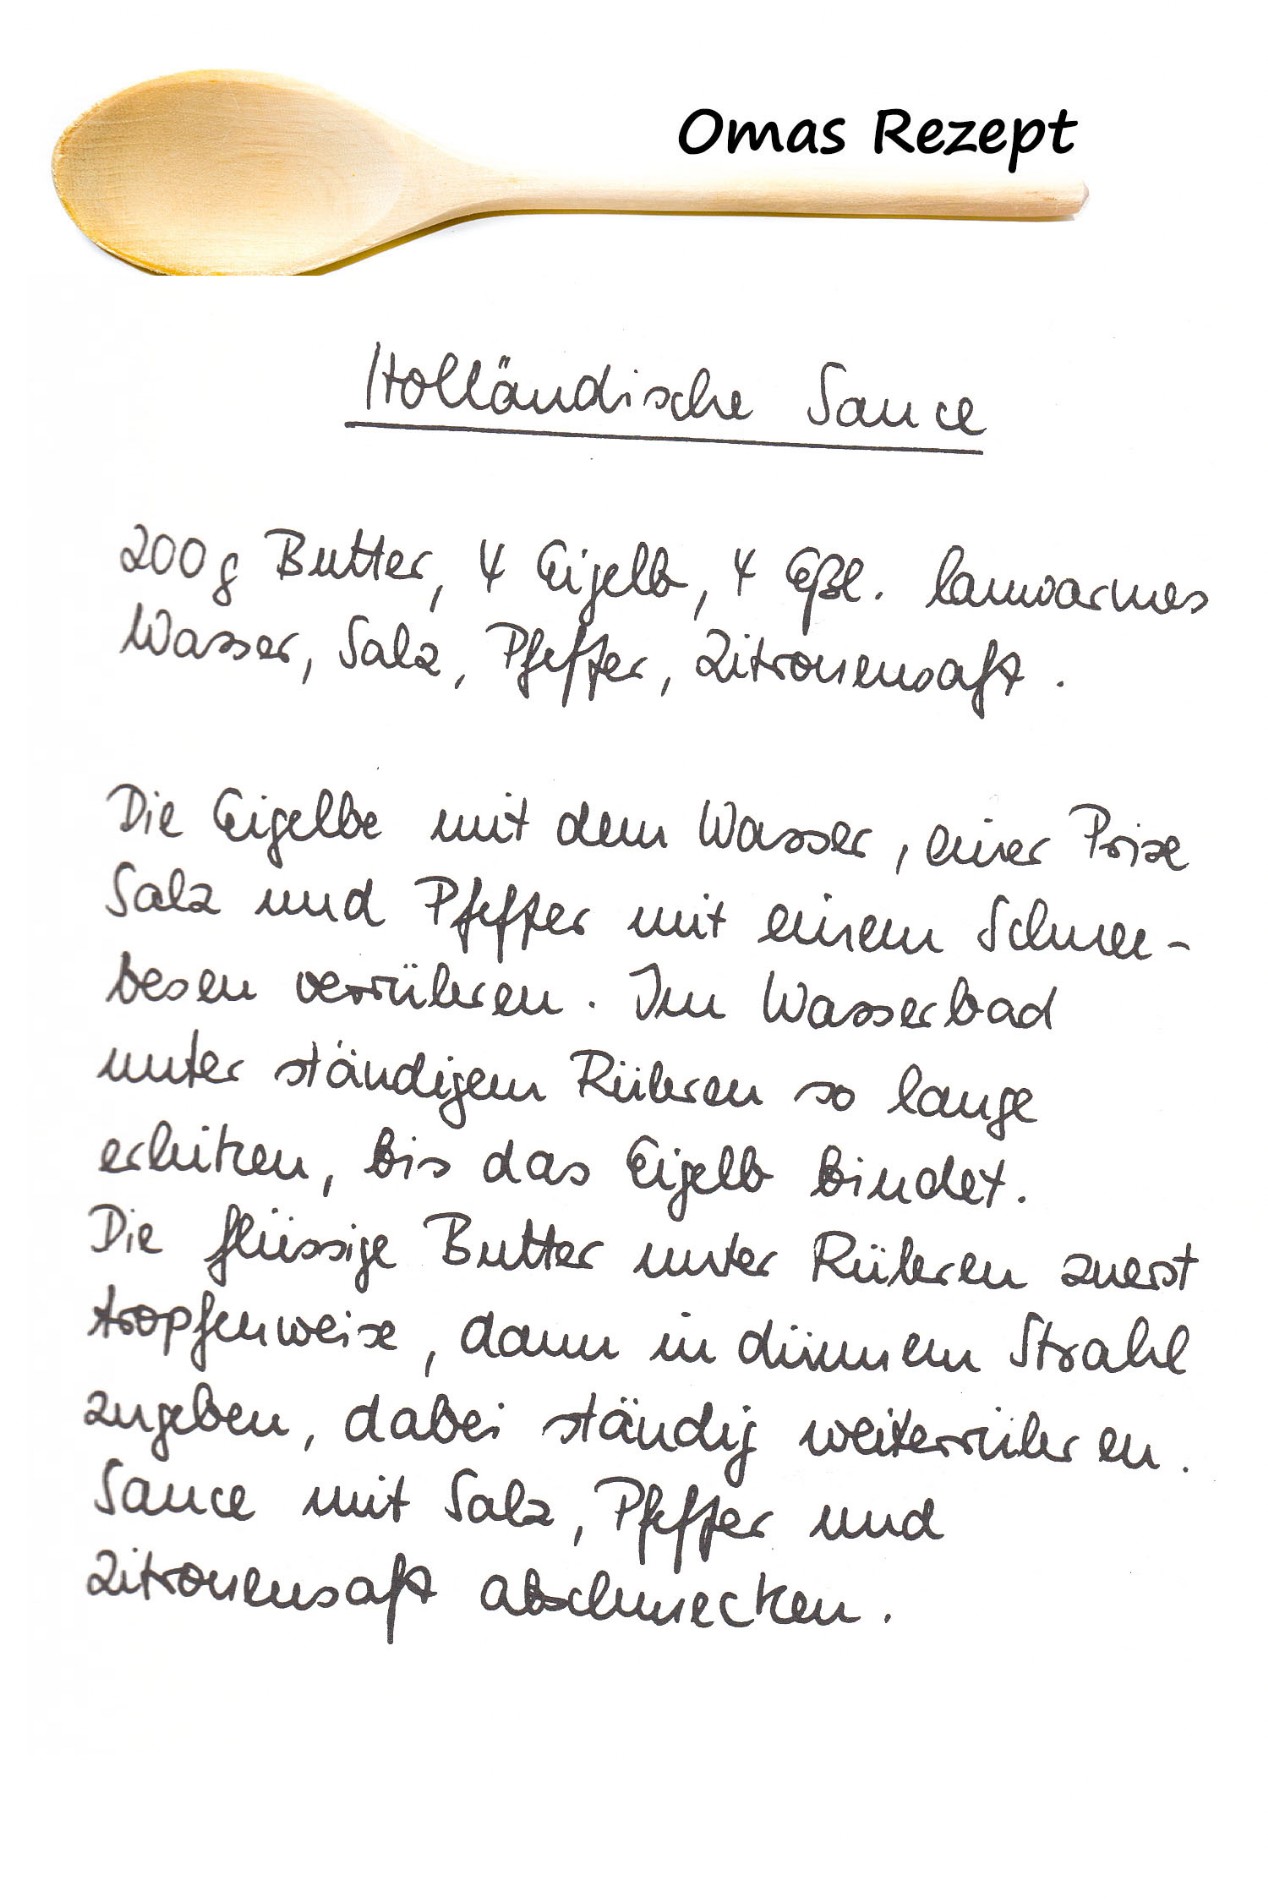 Omas Rezept
Holländische Sauce
200g Butter, 4 Eigelb, 4 Eßl. lauwarmes
Wasser, Salz, Pfeffer, Zitronensaft.
Die Eigelbe mit dem Wasser, einer Prise
Salz und Pfeffer mit einem Schnee-
besen verrühren. Im Wasserbad
unter ständigem Rühren so lange
erhitzen, bis das Eigelb bindet.
Die flüssige Butter unter Rühren zuerst
tropfenweise, dann in dünnem Strahl
zugeben, dabei ständig weiterrühren.
Sauce mit Salz, Pfeffer und
Zitronensaft abschmecken.